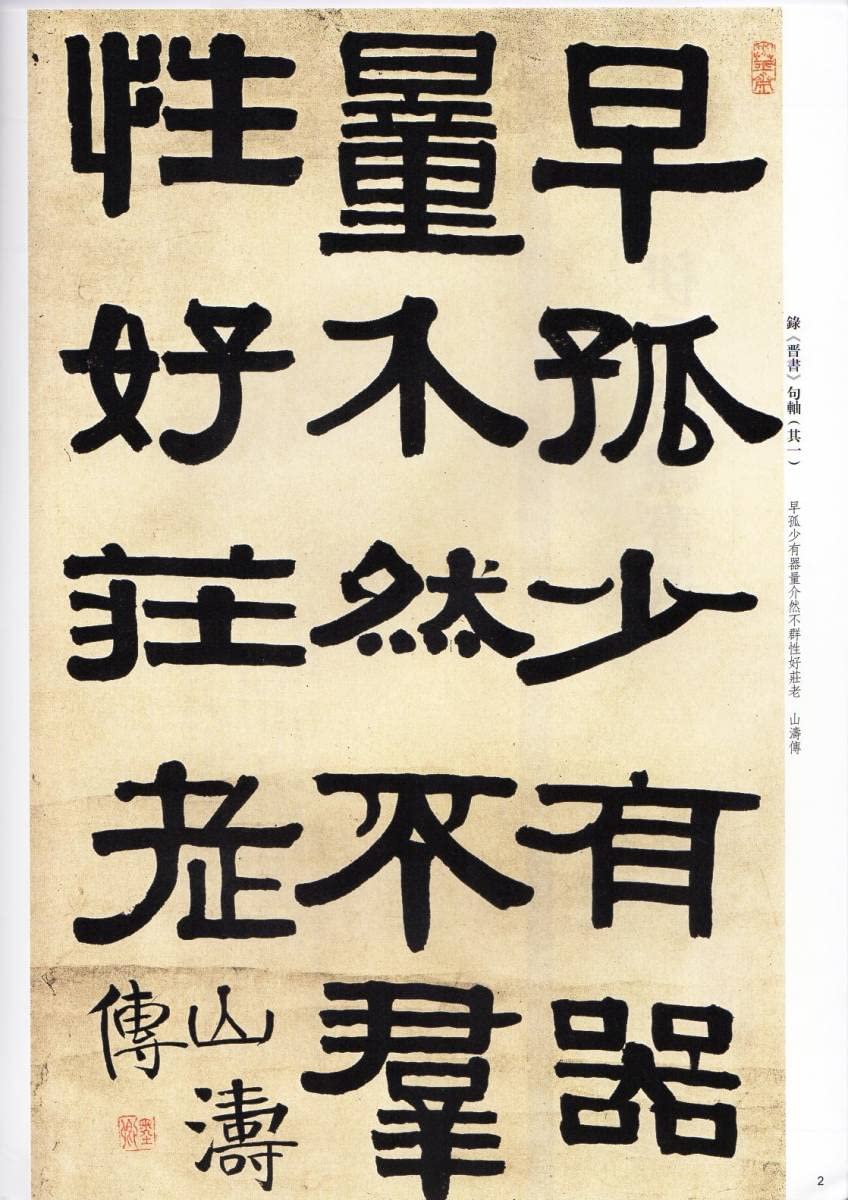 早孤少有器
量介然不羣
性好莊老
山濤
傳
錄《晋書》句軸（其一）
早孤少有器量介然不群性好莊老　山濤傳
2